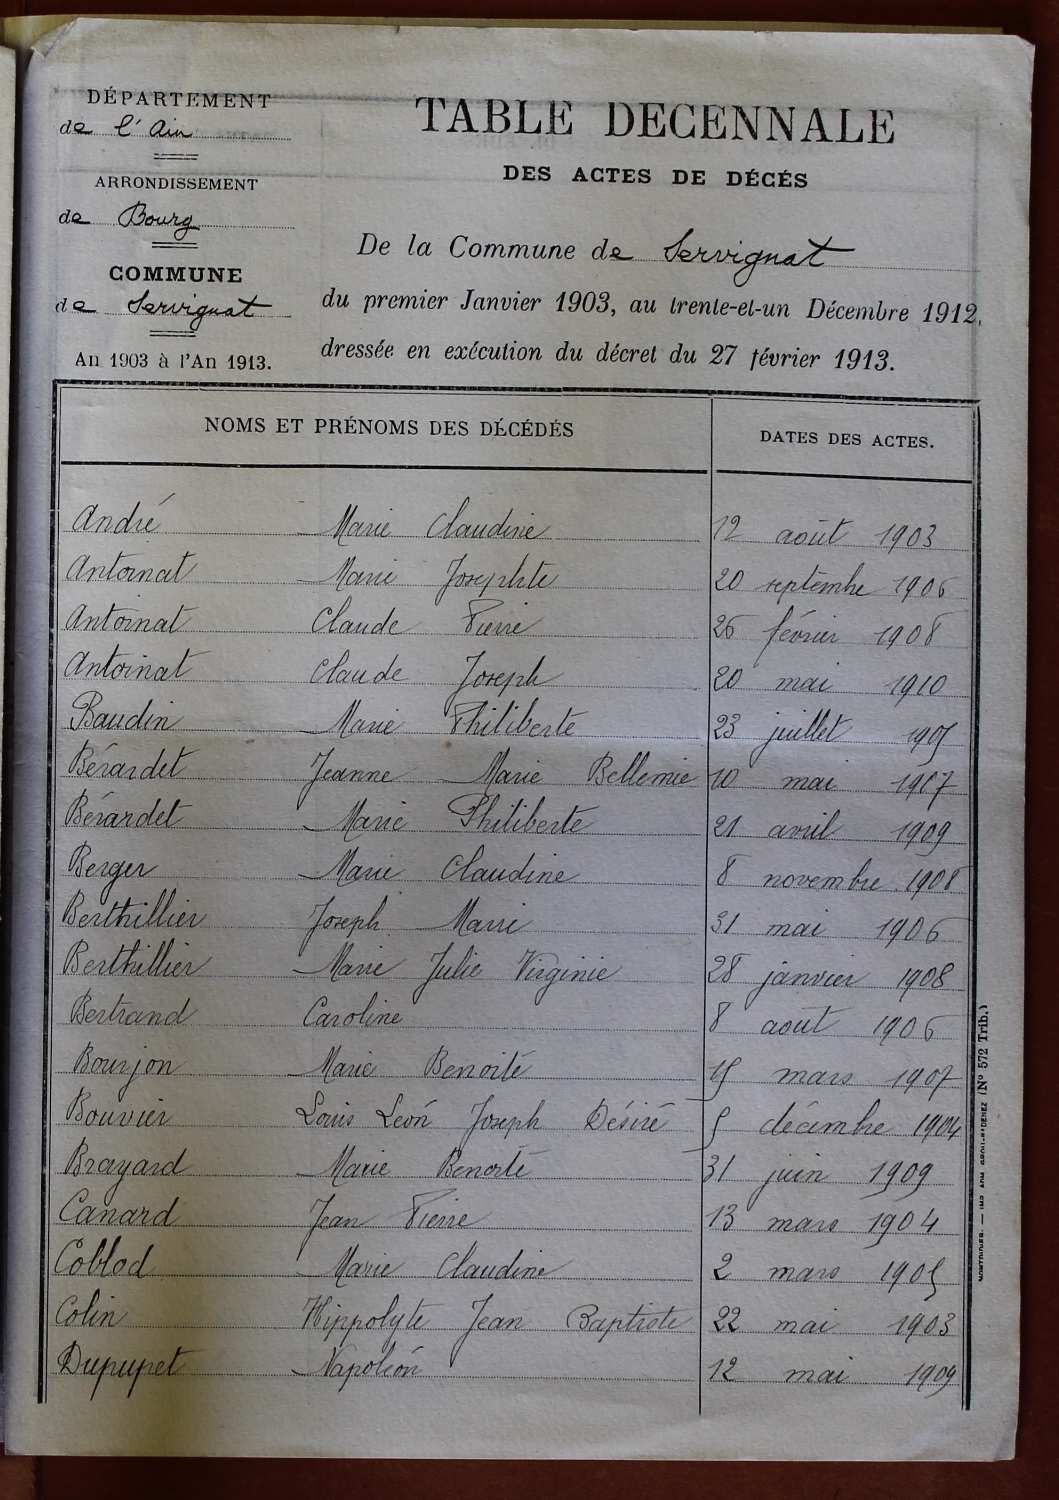 DÉPARTEMENT
de l'Ain
ARRONDISSEMENT
de Bourg
COMMUNE
de Servignat
An 1903 à l'An 1913.
TABLE DECENNALE
DES ACTES DE DÉCÉS
De la Commune de Servignat
du premier Janvier 1903, au trente-et-un Décembre 1912,
dressée en exécution du décret du 27 février 1913.
NOMS ET PRÉNOMS DES DÉCÉDÉS DATES DES ACTES.
André Marie Claudine 12 août 1903
Antoinat Marie Josephte 20 septembre 1906
Antoinat Claude Pierre 26 février 1908
Antoinat Claude Joseph 20 mai 1910
Baudin Marie Philiberte 23 juillet 1905
Bérardet Jeanne Marie Bellemie 10 mai 1907
Bérardet Marie Philiberte 21 avril 1909
Berger Marie Claudine 8 novembre 1908
Berthillier Joseph Marie 31 mai 1906
Berthillier Marie Julie Virginie 28 janvier 1908
Bertrand Caroline 8 aout 1906
Bourjon Marie Benoite 15 mars 1907
Bouvier Louis Léon Joseph Désiré 5 décembre 1904
Brayard Marie Benoite 31 juin 1909
Canard Jean Pierre 13 mars 1904
Coblod Marie Claudine 2 mars 1905
Colin Hippolyte Jean Baptiste 22 mai 1903
Dupupet Napoléon 12 mai 1909
(N° 572 Trib.)